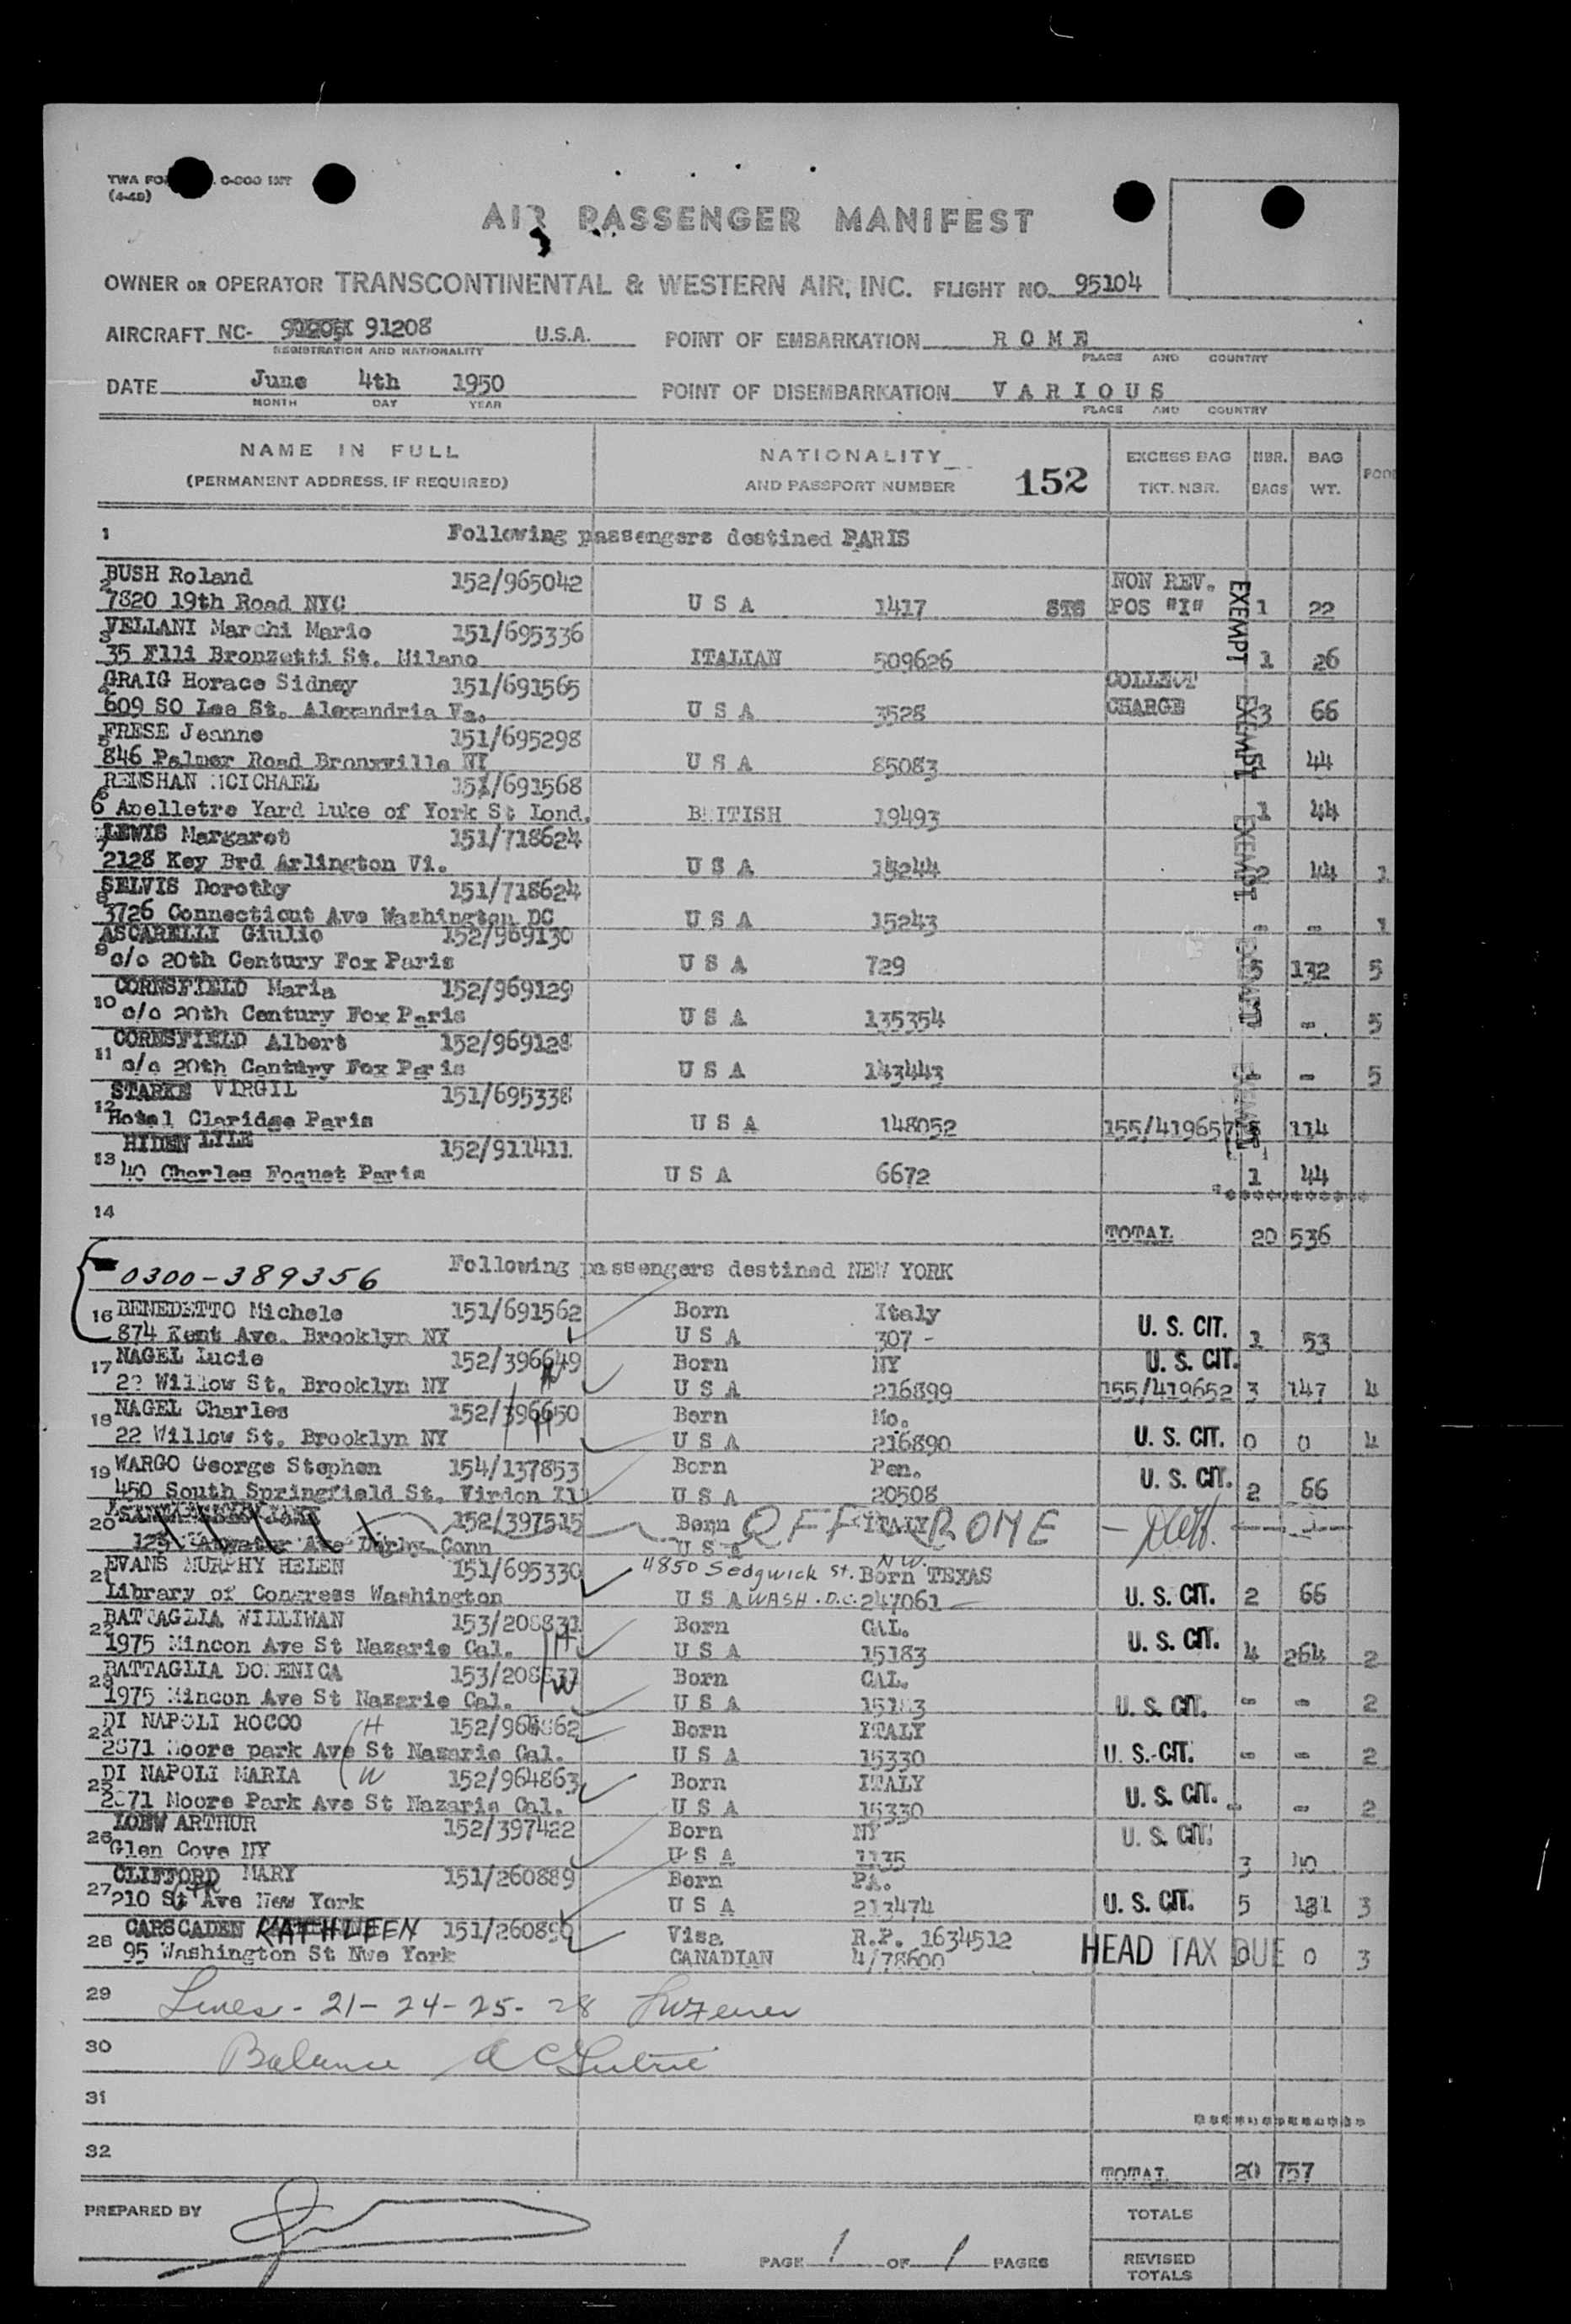 TWA FO . 0-800 INT
(4-48)
AIR PASSENGER MANIFEST
OWNER OR OPERATOR TRANSCONTINENTAL & WESTERN AIR, INC. FLIGHT NO. 95104
AIRCRAFT NC- 91208 U.S.A. POINT OF EMBARKATION R O M E
REGISTRATION AND NATIONALITY PLACE AND COUNTRY
DATE June 4th 1950 POINT OF DISEMBARKATION V A R I O U S
MONTH DAY YEAR PLACE AND COUNTRY
NAME IN FULL NATIONALITY EXCESS BAG NBR. BAG
(PERMANENT ADDRESS, IF REQUIRED) AND PASSPORT NUMBER 152 TKT. NBR. BAGS WT.
1 Following passengers destined PARIS
BUSH Roland 152/965042 NON REV.
2 7820 19th Road NYC U S A 1417 STS POS "I" EXEMPT 1 22
VELLANI Marchi Mario 151/695336
3 35 Flli Bronzetti St. Milano ITALIAN 509626 1 26
GRAIG Horace Sidney 151/691565 COLLECT
4 609 SO Lee St. Alexandria Va. U S A 3528 CHARGE EXEMPT 3 66
FRESE Jeanne 151/695298
5 846 Palmer Road Bronxville NY U S A 85083 44
RENSHAN MCICHAEL 151/691568
6 6 Apelletre Yard Luke of York St Lond. BRITISH 19493 1 44
LEWIS Margaret 151/718624
7 2128 Key Brd Arlington Vi. U S A 15244 EXEMPT 2 44 1
SELVIS Dorothy 151/718624
8 3726 Connecticut Ave Washington DC U S A 15243 - - 1
ASCARELLI Giulio 152/969130
9 c/o 20th Century Fox Paris U S A 729 EXEMPT 5 132 5
CORNSFIELD Maria 152/969129
10 c/o 20th Century Fox Paris U S A 135354 - 5
CORNSFIELD Albert 152/969128
11 c/o 20th Century Fox Paris U S A 143443 EXEMPT - - 5
STARKE VIRGIL 151/695338
12 Hotel Claridge Paris U S A 148052 155/419657 114
HIDEN LYLE 152/911411
13 40 Charles Foquet Paris U S A 6672 1 44
14 TOTAL 20 536
0300-389356 Following passengers destined NEW YORK
16 BENEDETTO Michele 151/691562 Born Italy
874 Kent Ave. Brooklyn NY U S A 307 - U. S. CIT. 1 53
17 NAGEL Lucie 152/396649 Born NY U. S. CIT.
22 Willow St. Brooklyn NY W U S A 216899 155/419652 3 147 4
18 NAGEL Charles 152/396650 Born Mo.
22 Willow St. Brooklyn NY H U S A 216890 U. S. CIT. 0 0 4
19 WARGO George Stephen 154/137853 Born Pen. U. S. CIT.
450 South Springfield St. Virden Ill U S A 20508 2 66
20 152/397515 Born ITALY OFF ROME
Ave Derby Conn U S A
EVANS MURPHY HELEN 151/695330 4850 Sedgwick St. N.W. Born TEXAS
21 Library of Congress Washington U S A WASH. D.C. 247061 U. S. CIT. 2 66
BATTAGLIA WILLIWAN 153/208831 Born CAL.
22 1975 Mincon Ave St Nazarie Cal. H U S A 15183 U. S. CIT. 4 264 2
BATTAGLIA DOMENICA Born CAL.
23 1975 Mincon Ave St Nazarie Cal. W U S A 15183 U. S. CIT. - - 2
DI NAPOLI ROCCO H 152/964862 Born ITALY
24 2871 Moore park Ave St Nazarie Cal. U S A 15330 U. S. CIT. - - 2
DI NAPOLI MARIA W 152/964863 Born ITALY
25 2871 Moore Park Ave St Nazarie Cal. U S A 15330 U. S. CIT. - - 2
LOEW ARTHUR 152/397422 Born NY
26 Glen Cove NY U S A 1135 U. S. CIT. 3
CLIFFORD MARY 151/260889 Born PA.
27 210 5th Ave New York U S A 213474 U. S. CIT. 5 3
CARSCADEN KATHLEEN 151/260890 Visa R.P. 1634512
28 95 Washington St Nwe York CANADIAN 4/78600 HEAD TAX DUE 0 0 3
29 Lines - 21-24-25-28
30 Balance
31
32
TOTAL 20 757
PREPARED BY TOTALS
PAGE 1 OF 1 PAGES REVISED
TOTALS